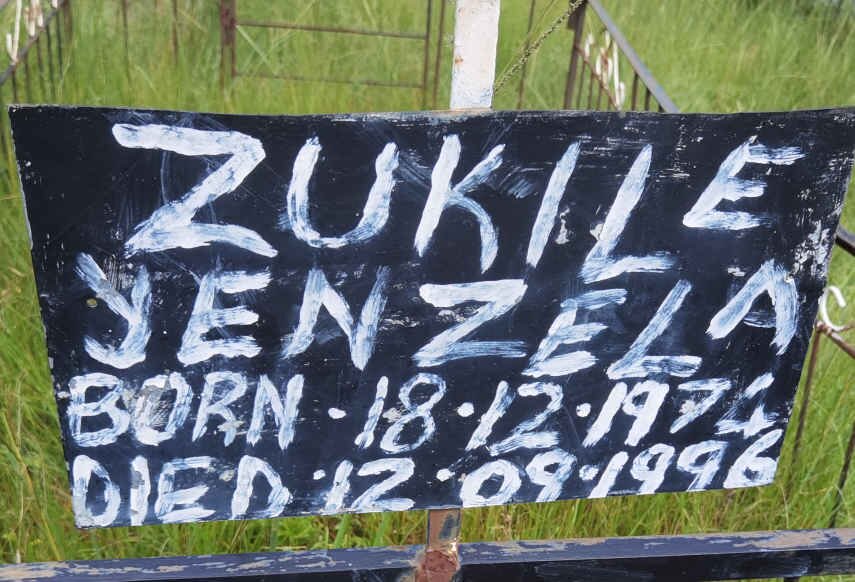 ZUKILE
YENZELA
BORN.18.12.1974
DIED.12.09.1996